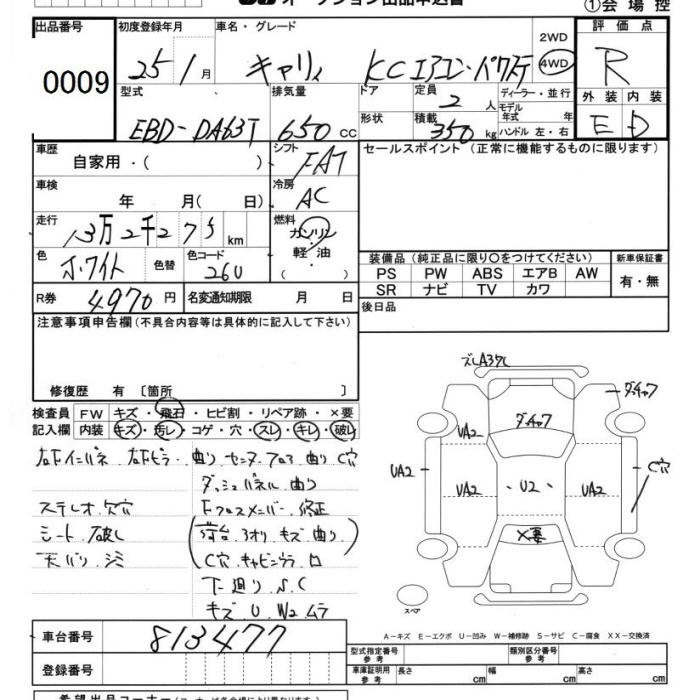 オークション出品申込書
①会場控
出品番号 0009
初度登録年月 25/1月
車名・グレード キャリィ KCエアコン・パワステ
2WD 4WD
評価点 R
外装 E 内装 D
型式 EBD-DA63T
排気量 650 cc
ドア 形状
定員 2人
積載 350 kg
ディーラー・並行
モデル年式 年
ハンドル 左・右
車歴 自家用・( )
シフト FAT
車検 年 月(日)
冷房 AC
走行 13万2千275 km
燃料 ガソリン・軽油
色 ホワイト 色替
色コード 26U
R券 4970円
名変通知期限 月 日
セールスポイント(正常に機能するものに限ります)
装備品(純正品に限り○をつけてください)
PS PW ABS エアB AW
SR ナビ TV カワ
新車保証書
有・無
後日品
注意事項申告欄(不具合内容等は具体的に記入して下さい)
修復歴 有 〔箇所 〕
検査員 FW キズ・飛石・ヒビ割・リペア跡・×要
記入欄 内装 キズ・汚レ・コゲ・穴・スレ・キレ・破レ
右下インパネ 右下ピラー 曲り センターフロア 曲り C穴
ダッシュパネル 曲り
ステレオ穴穴 Fクロスメンバー 修正
シート 破レ (荷台 3オリ キズ 曲り
天バリ シミ C穴 キャビンウラ ロ)
下廻り S.C
キズ U W2 ムラ
ダッチャク
ダッチャク
UA2
UA2
UA2
U2
UA2
C穴
×要
スペア
A-キズ E-エクボ U-凹み W-補修跡 S-サビ C-腐食 XX-交換済
車台番号 813477
登録番号
型式指定番号 参考
類別区分番号 参考
車庫証明用 参考 長さ cm 幅 cm 高さ cm